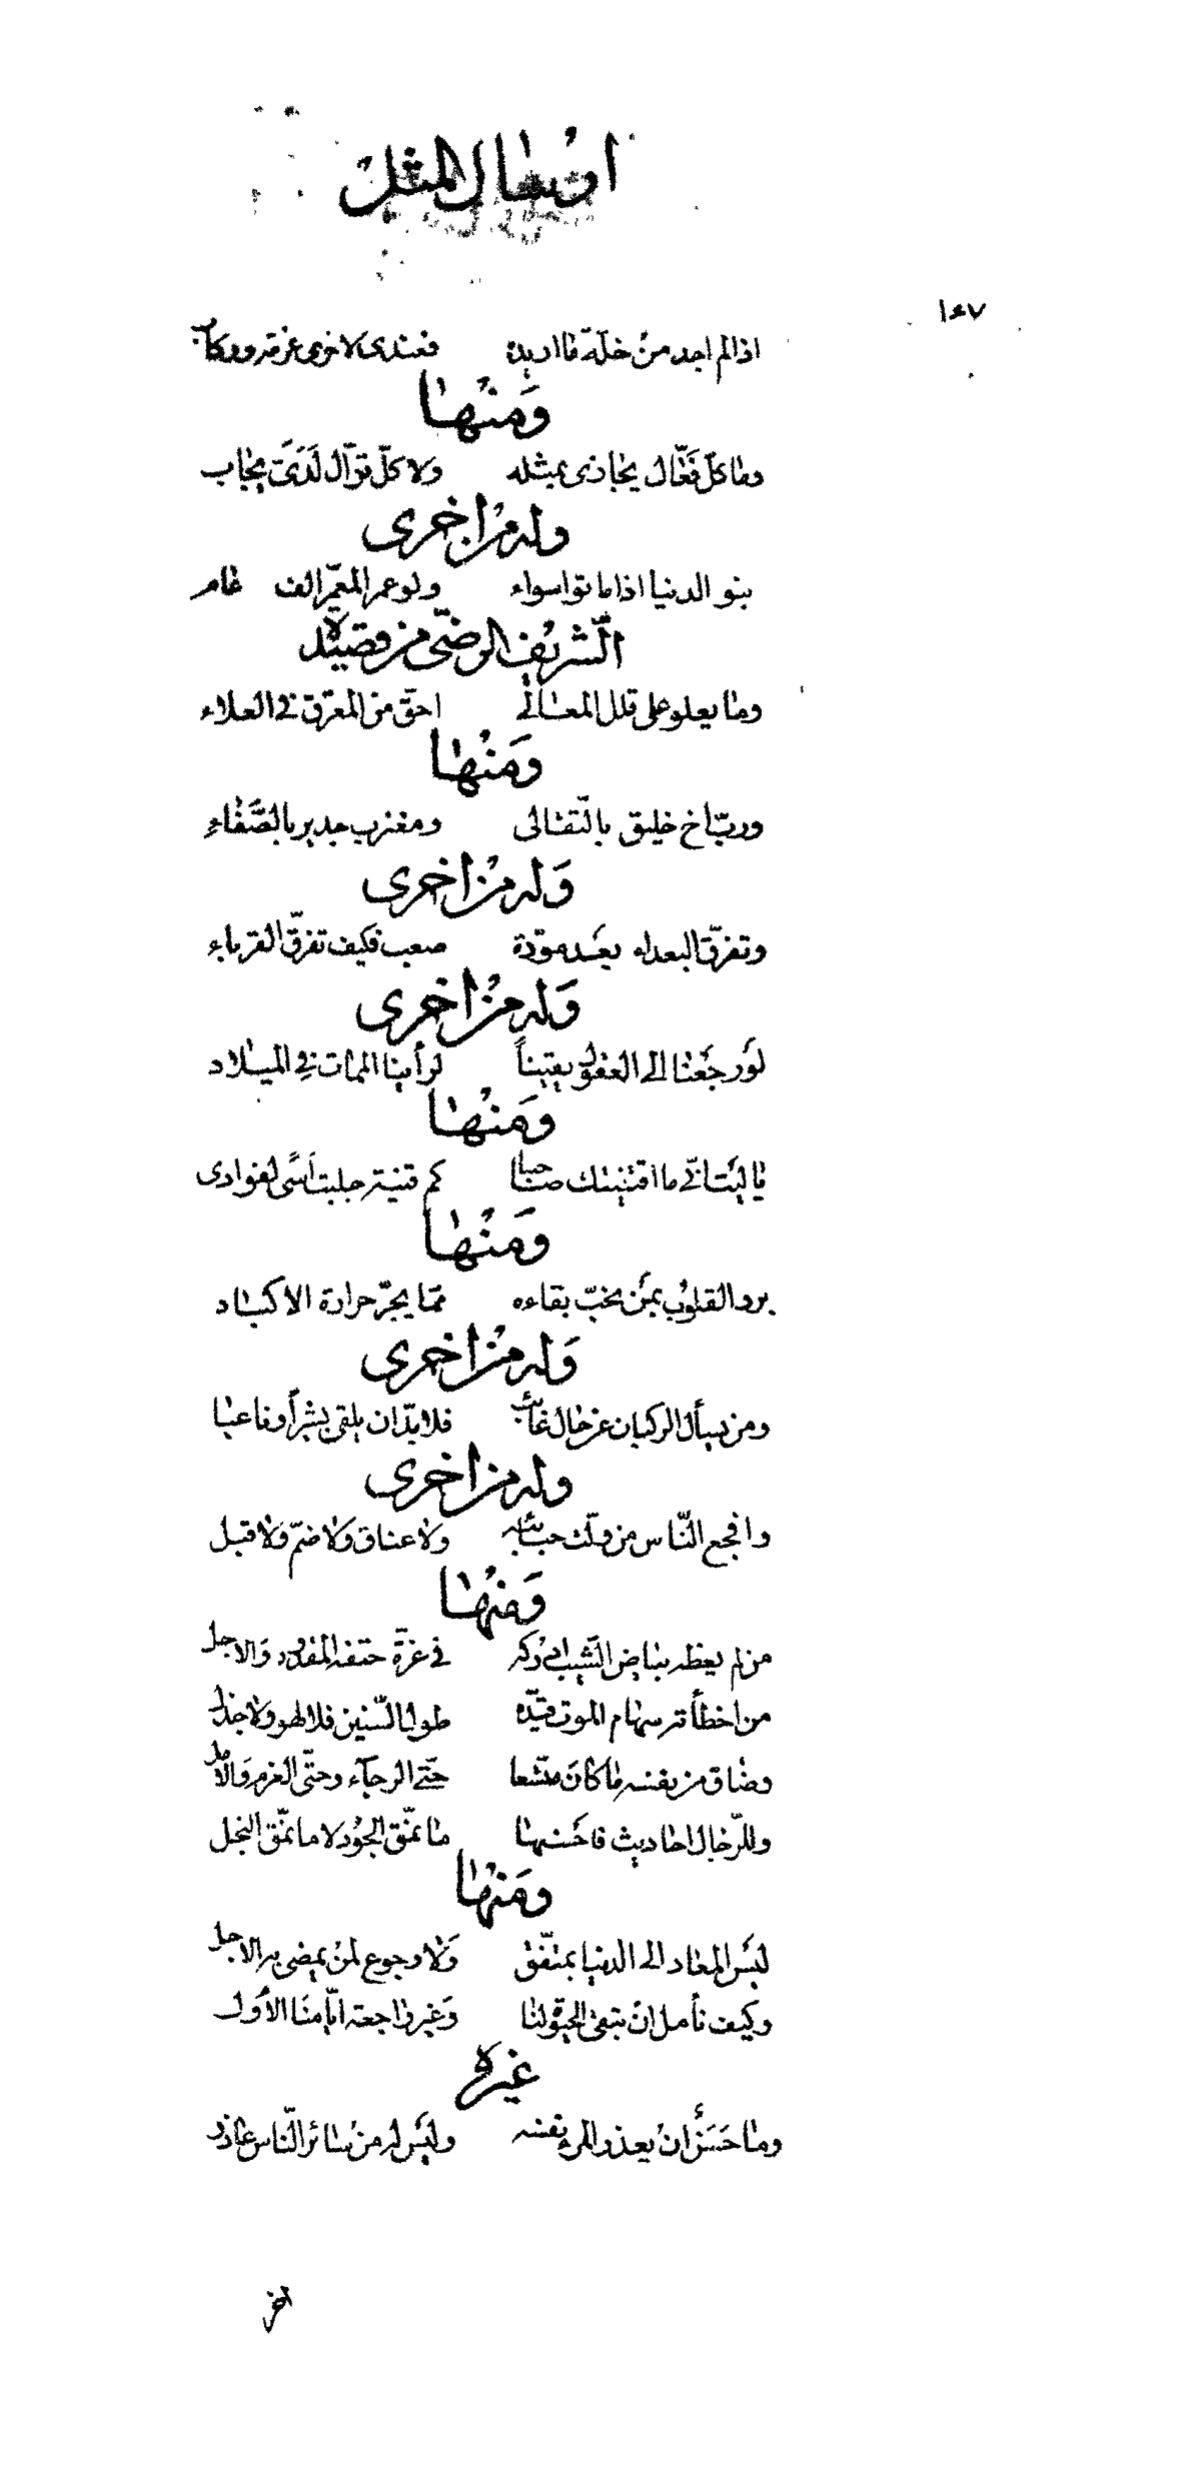 ارسال المثل
١٤٧
اذا لم اجد من خلّة ما اريده فعندى لاخرى عزمة وركاب
ومنها
وما كلّ فعّال يجازى بمثله ولا كلّ قوّال لدىّ يجاب
وله من اخرى
بنو الدنيا اذا ماتوا سواء ولو عمر المعمّر الف عام
الشّريف الرضىّ من قصيدة
وما يعلو على قلل المعالى احقّ من المعرّق فى العلاء
ومنها
وربّ اخ خليق بالتّقالى ومغترب جدير بالصّفاء
وله من اخرى
وتفرّق البعداء بعد مودّة صعب فكيف تفرّق القرباء
وله من اخرى
لو رجعنا الى العقول يقيناً لرأينا الممات فى الميلاد
ومنها
يا ليت انّى ما اقتنيتك صاحبا كم قنية جلبت اسًى لفوادى
ومنها
برد القلوب بمن نحبّ بقاءه ممّا يجرّ حرارة الاكباد
وله من اخرى
ومن يسأل الركبان عن حال غائب فلا بدّ ان يلقى بشيراً وناعيا
وله من اخرى
وافجع النّاس من ولّت حبائبه ولا عناق ولا ضمّ ولا قبل
ومنها
من لم يعظه بياض الشّيب ادركه فى غرّة حتفه المقدور والاجل
من اخطأته سهام الموت قيّده طول السّنين فلا لهو ولا جذل
وضاق من نفسه ما كان متّسعا حتّى الرجآء وحتّى العزم والامل
وللرّجال احاديث فاحسنها ما نمّق الجود لا ما نمّق البخل
ومنها
ليس المعاد الى الدنيا بمتّفق ولا رجوع لمن يمضى به الاجل
وكيف نأمل ان تبقى الحيوة لنا وغير راجعة ايّامنا الأول
غيره
وما حسنٌ ان يعذر المرء نفسه وليس له من سائر النّاس عاذر
آخر